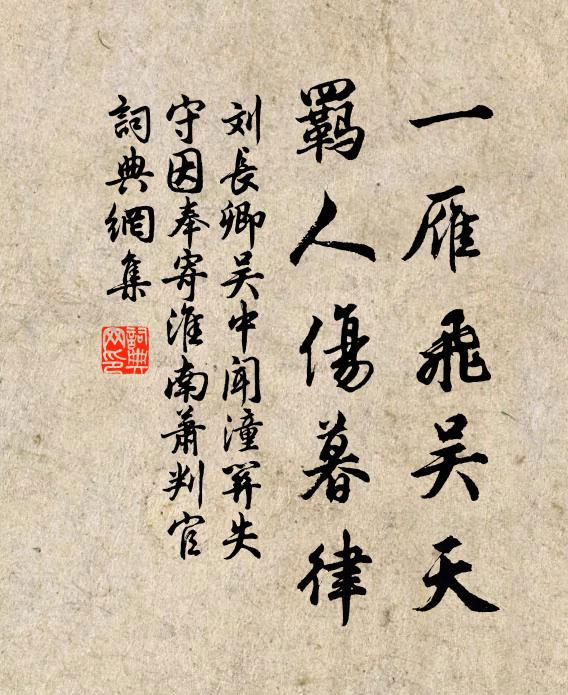 一雁飛吴天
羈人傷暮律
刘長卿吴中闻潼関失
守因奉寄淮南萧判官
詞典網集
詞典网印